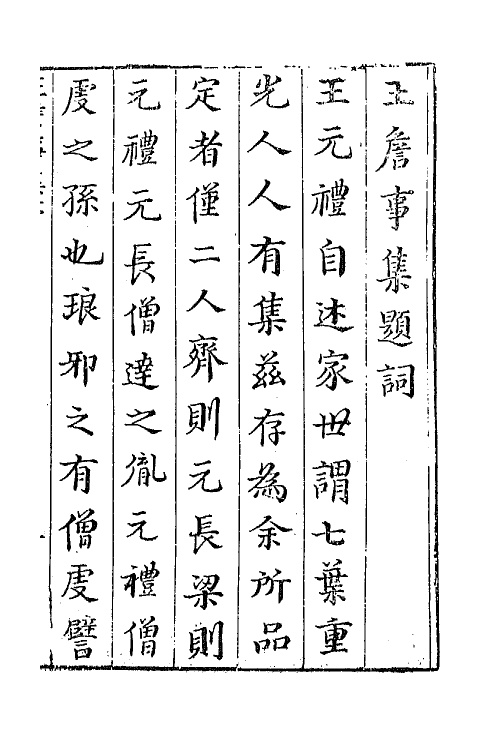 王詹事集題詞
王元禮自述家世謂七葉重
光人人有集茲存為余所品
定者僅二人齊則元長梁則
元禮元長僧達之胤元禮僧
虔之孫也琅邪之有僧虔譬